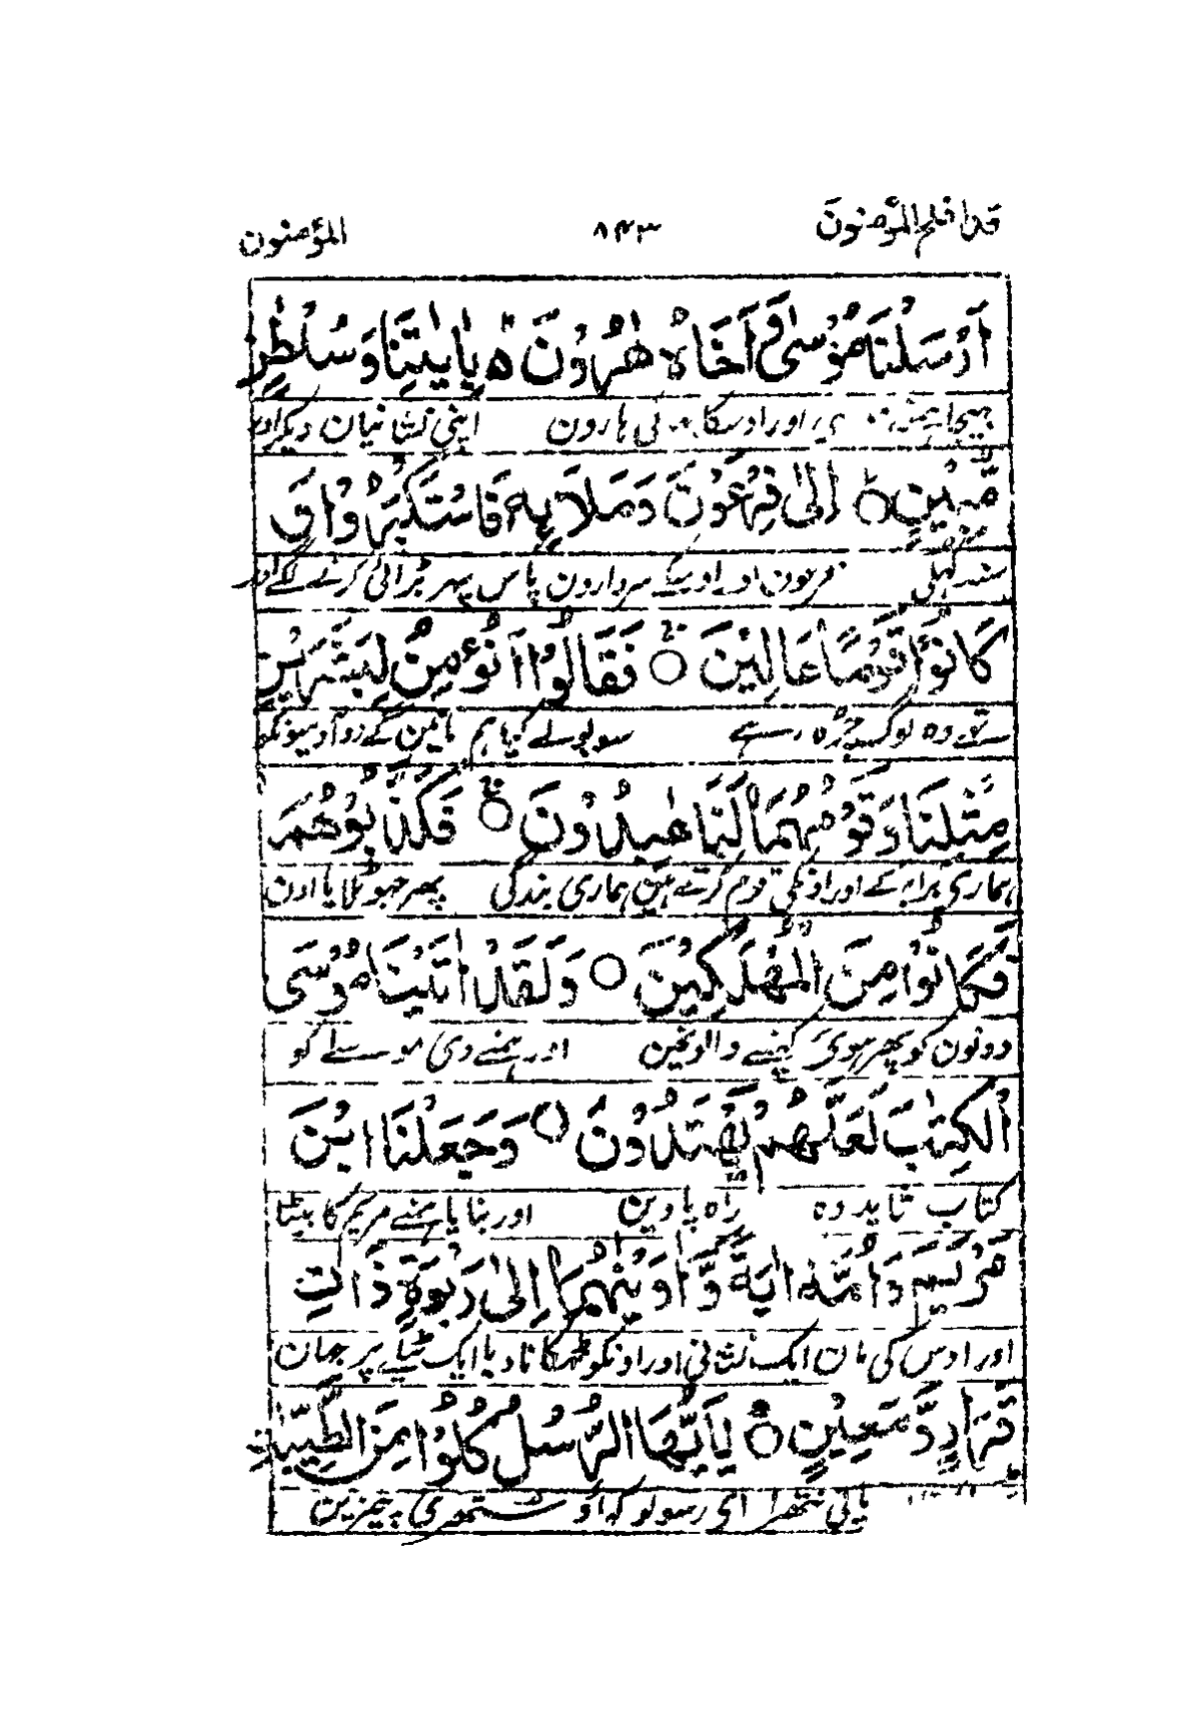 قد افلح المؤمنون ۸۴۳ المؤمنون
اَرْسَلْنَا مُوْسٰى وَاَخَاهُ هٰرُوْنَ ۵ بِاٰيٰتِنَا وَسُلْطٰنٍ
بھیجا ہمنے اور اوسکا بھائی ہارون اپنی نشانیان دیکر اور
مُّبِيْنٍ ۵ اِلٰى فِرْعَوْنَ وَمَلَا۟ئِهٖ فَاسْتَكْبَرُوْا وَ
سند کہلی فرعون اور اوسکے سردارون پاس پہر بڑائی کرنے لگے اور
كَانُوْا قَوْمًا عَالِيْنَ ۝ فَقَالُوْٓا اَنُؤْمِنُ لِبَشَرَيْنِ
تھے وہ لوگ چڑہ رہے سو بولے کیا ہم مانین گے دو آدمیونکو
مِثْلِنَا وَقَوْمُهُمَا لَنَا عٰبِدُوْنَ ۝ فَكَذَّبُوْهُمَا
ہماری برابر کے اور اونکی قوم کرتے ہین ہماری بندگی پھر جھوٹلایا اون
فَكَانُوْا مِنَ الْمُهْلَكِيْنَ ۝ وَلَقَدْ اٰتَيْنَا مُوْسَى
دونون کو پھر ہوئے کھپنے والونمین اور ہمنے دی موسے کو
الْكِتٰبَ لَعَلَّهُمْ يَهْتَدُوْنَ ۝ وَجَعَلْنَا ابْنَ
کتاب شاید وہ راہ پاوین اور بنایا ہمنے مریم کا بیٹا
مَرْيَمَ وَاُمَّهٗٓ اٰيَةً وَّاٰوَيْنٰهُمَآ اِلٰى رَبْوَةٍ ذَاتِ
اور اوس کی مان ایک نشانی اور اونکو ٹھکانا دیا ایک ٹیلے پر جہان
قَرَارٍ وَّمَعِيْنٍ ۝ يٰٓاَيُّهَا الرُّسُلُ كُلُوْا مِنَ الطَّيِّبٰتِ
پانی نتھرا ای رسولو کھاؤ ستھری چیزین